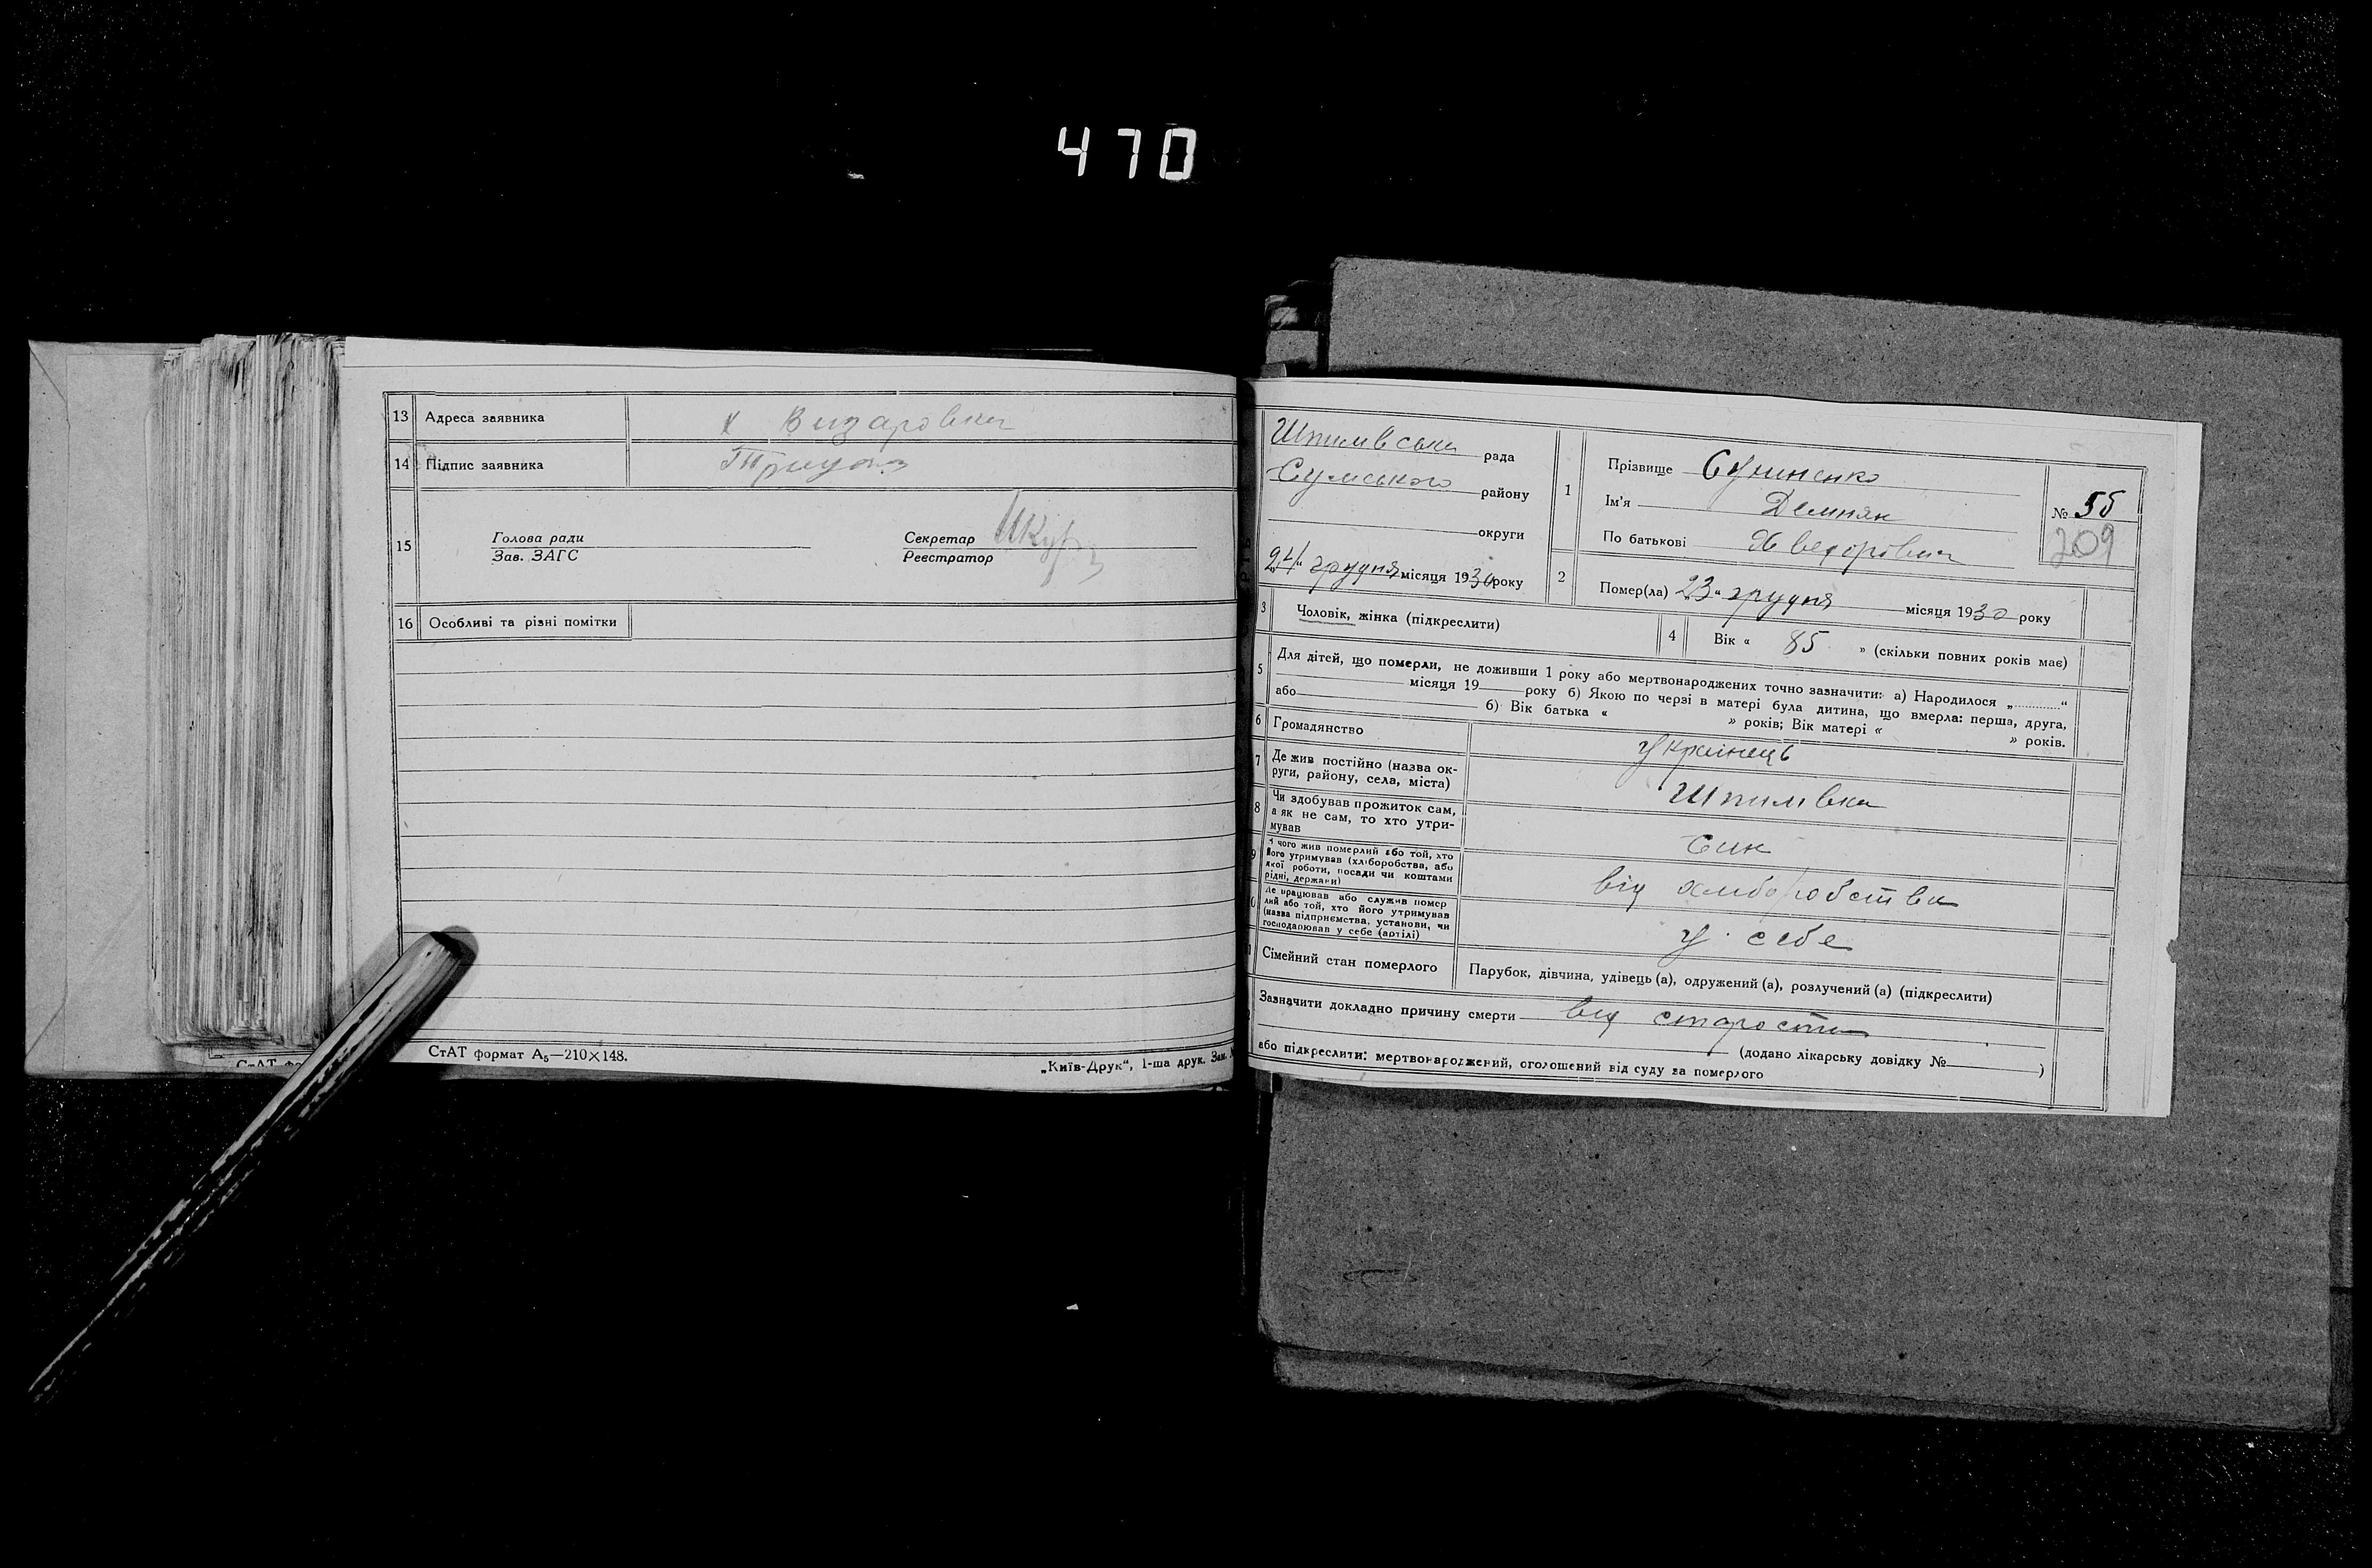 470
13 Адреса заявника х Визаровка
14 Підпис заявника
15 Голова ради
Зав. ЗАГС
Секретар
Реєстратор
16 Особливі та різні помітки
СтАТ формат А₅—210×148.
„Київ-Друк“, 1-ша друк. Зам.
Шпилівська рада
Сумського району
округи
„24“ грудня місяця 1930 року
1 Прізвище
Ім'я Демпян
По батькові Хведорович
№ 55
209
2 Помер(ла) „23“ грудня місяця 1930 року
3 Чоловік, жінка (підкреслити)
4 Вік « 85 » (скільки повних років має)
5 Для дітей, що померли, не доживши 1 року або мертвонароджених точно зазначити: а) Народилося „............“
місяця 19 року б) Якою по черзі в матері була дитина, що вмерла: перша, друга,
або б) Вік батька « » років; Вік матері « » років.
6 Громадянство Українець
7 Де жив постійно (назва ок-
руги, району, села, міста) Шпилівка
8 Чи здобував прожиток сам,
а як не сам, то хто утри-
мував Син
9 З чого жив померлий або той, хто
його утримував (хліборобства, або
якої роботи, посади чи коштами
рідні, держави) від хліборобства
0 Де працював або служив помер
лий або той, хто його утримував
(назва підприємства, установи, чи
господарював у себе (артілі) у себе
Сімейний стан померлого Парубок, дівчина, удівець (а), одружений (а), розлучений (а) (підкреслити)
Зазначити докладно причину смерти від старости
(додано лікарську довідку № )
або підкреслити: мертвонароджений, оголошений від суду за померлого